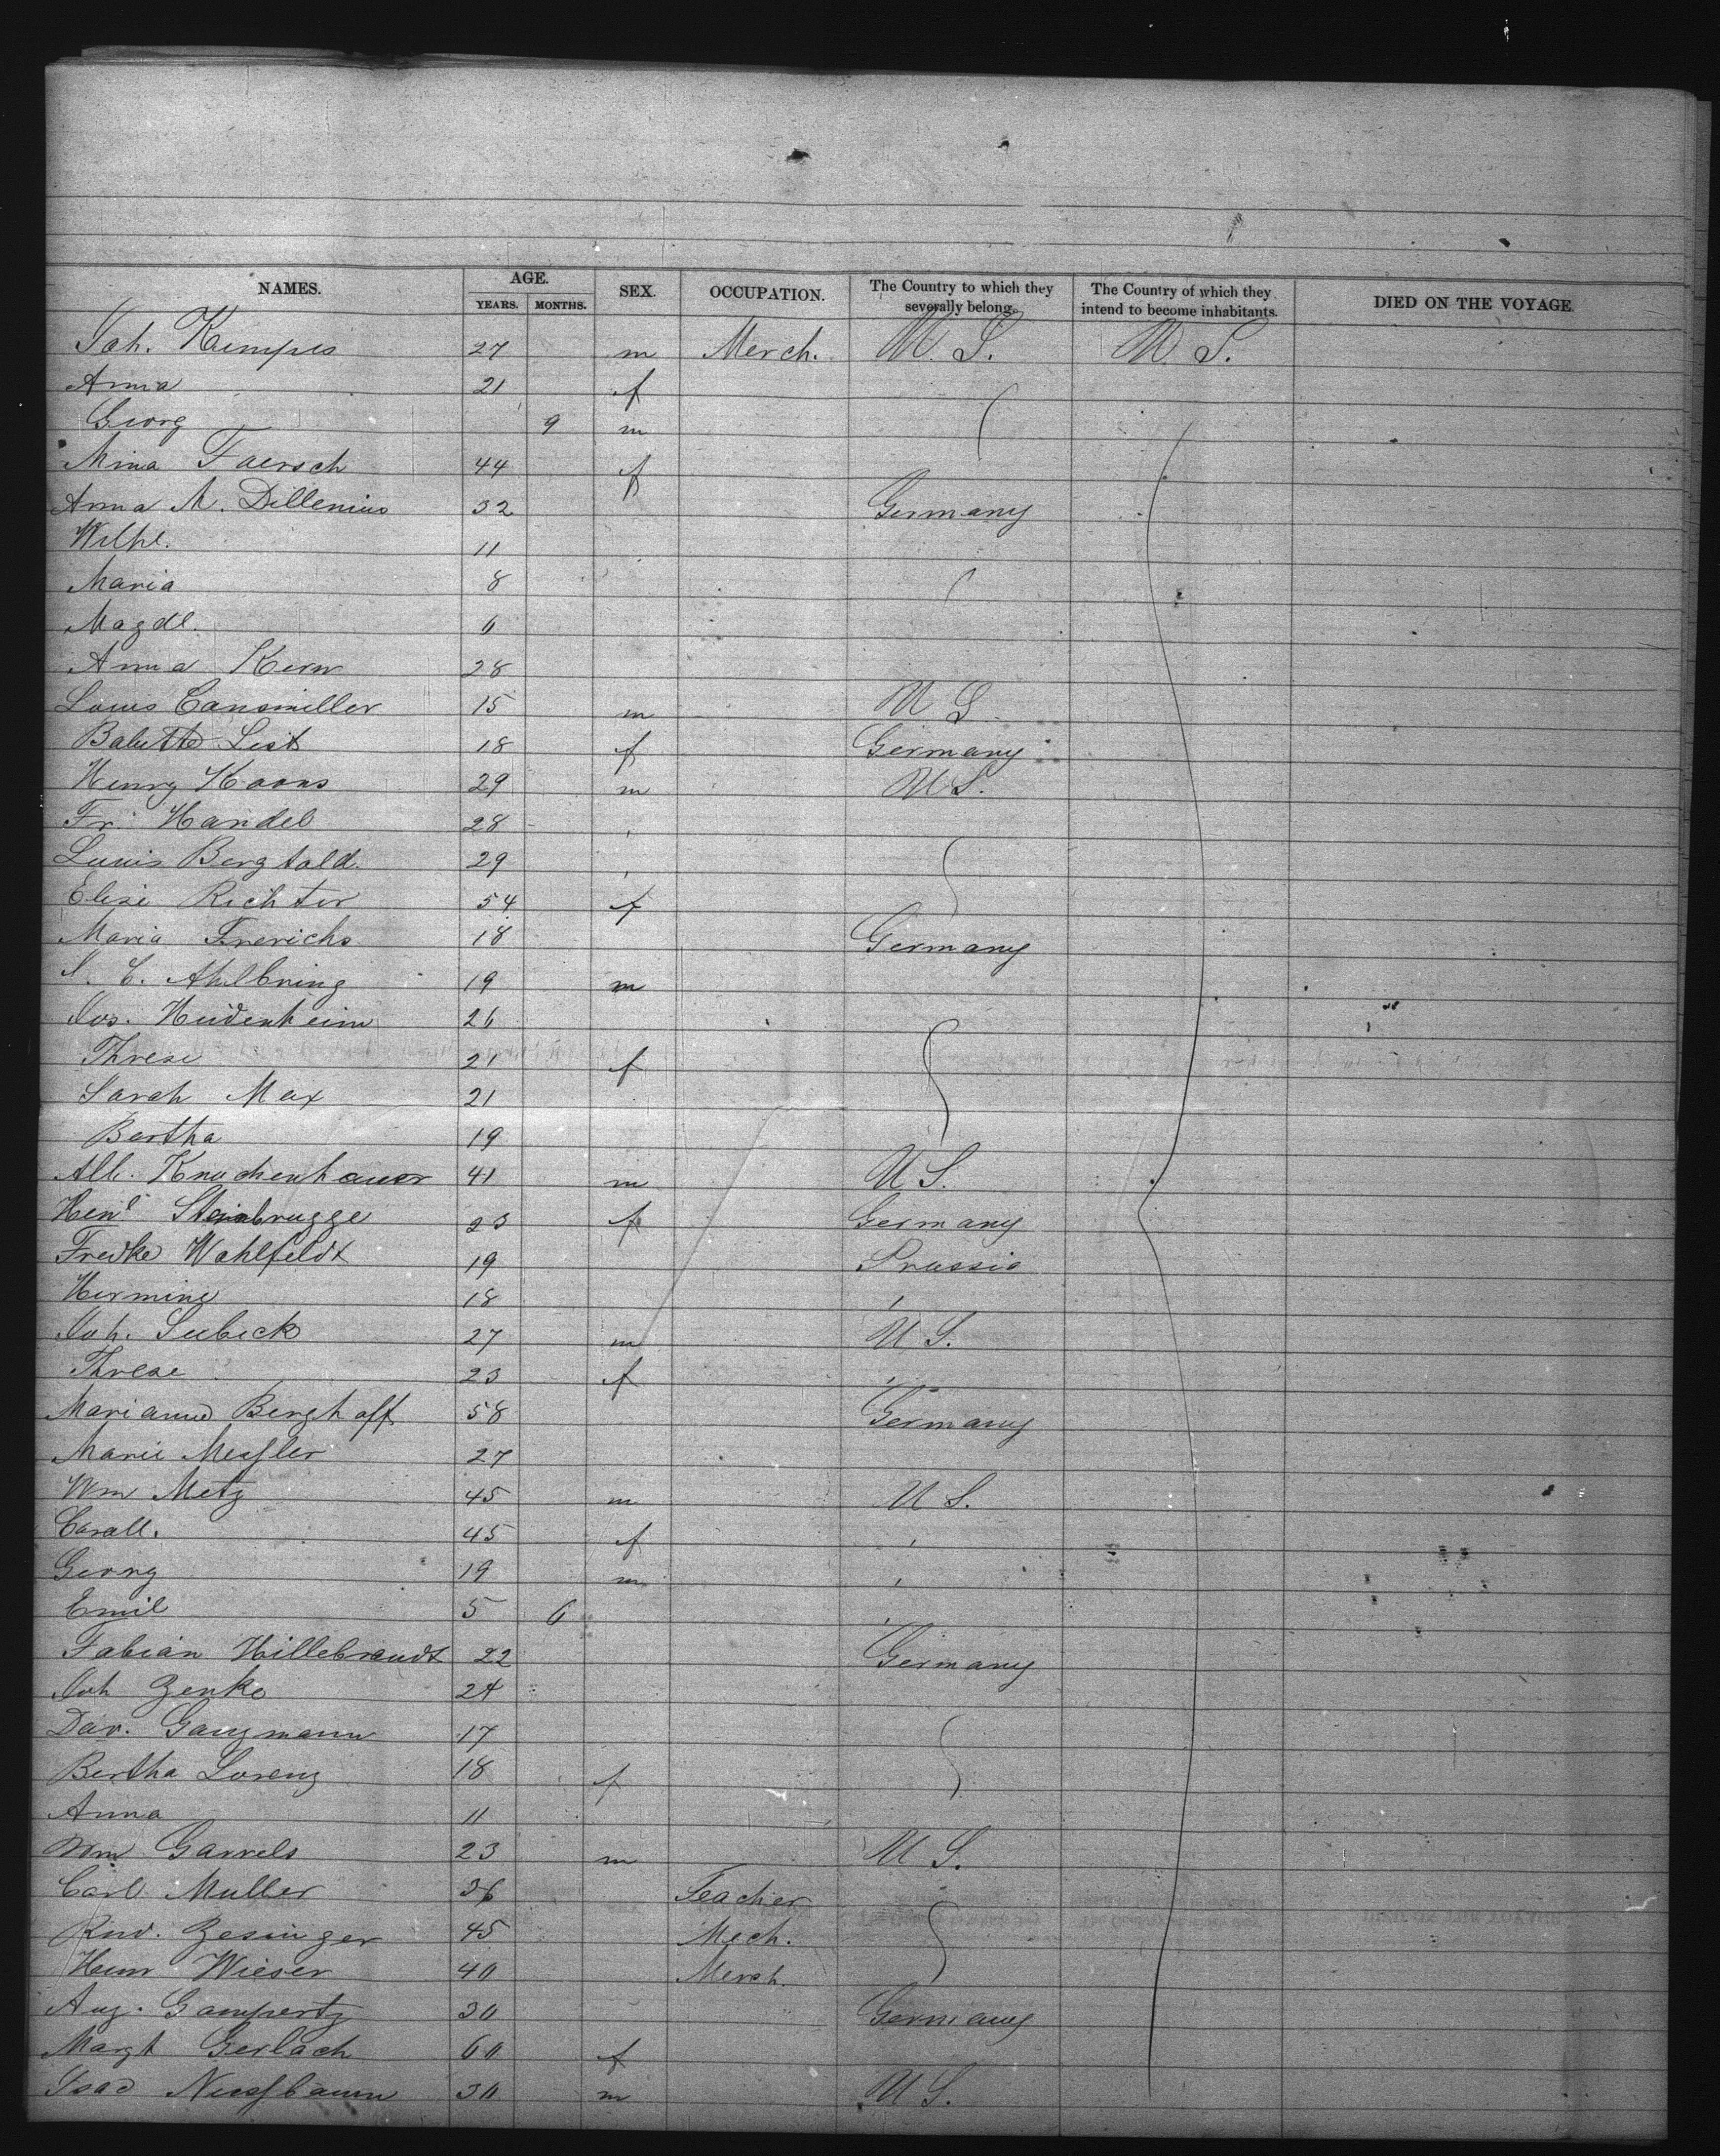 NAMES. AGE. SEX. OCCUPATION. The Country to which they severally belong. The Country of which they intend to become inhabitants. DIED ON THE VOYAGE
YEARS. MONTHS.
Joh. Kempes 27 m Merch. U. S. U. S.
Anna 21 f
Georg 9 m
Mina Faersch 44 f
Anna M. Dillenius 32 Germany
Wilhe. 11
Maria 8
Magdl. 6
Anna Kern 28
Louis Cansmiller 15 m U S
Babette List 18 f Germany
Henry Koons 29 m U S.
Fr. Handel 28 "
Louis Bergtold. 29 "
Elise Richter 54 f
Maria Frerichs 18 Germany
J. C. Ahlbring 19 m
Jos. Heidenheim 26
Threse 21 f
Sarah Max 21
Bertha 19
Alb. Knochenhauer 41 m U S.
Henl Steinbrugge 23 f Germany
Fredke Wahlfeldt 19 Prussia
Hermine 18 "
Joh. Seebeck 27 m U S.
Threse 23 f "
Marianne Berghoff 58 Germany
Marie Messler 27
Wm Metz 45 m U S.
Caroll. 45 f "
Georg 19 m "
Emil 5 6 "
Fabian Hillebrandt 22 Germany
Joh Zenke 24
Dav. Gangmann 17
Bertha Lorenz 18 f
Anna 11
Wm Garrels 23 m U S.
Carl Muller 36 Teacher
Rud. Zesinger 45 Mech.
Henr Wieser 40 Merch.
Aug. Gompertz 30 Germany
Margt Gerlach 60 f
Isac Nussbaum 30 m U S.